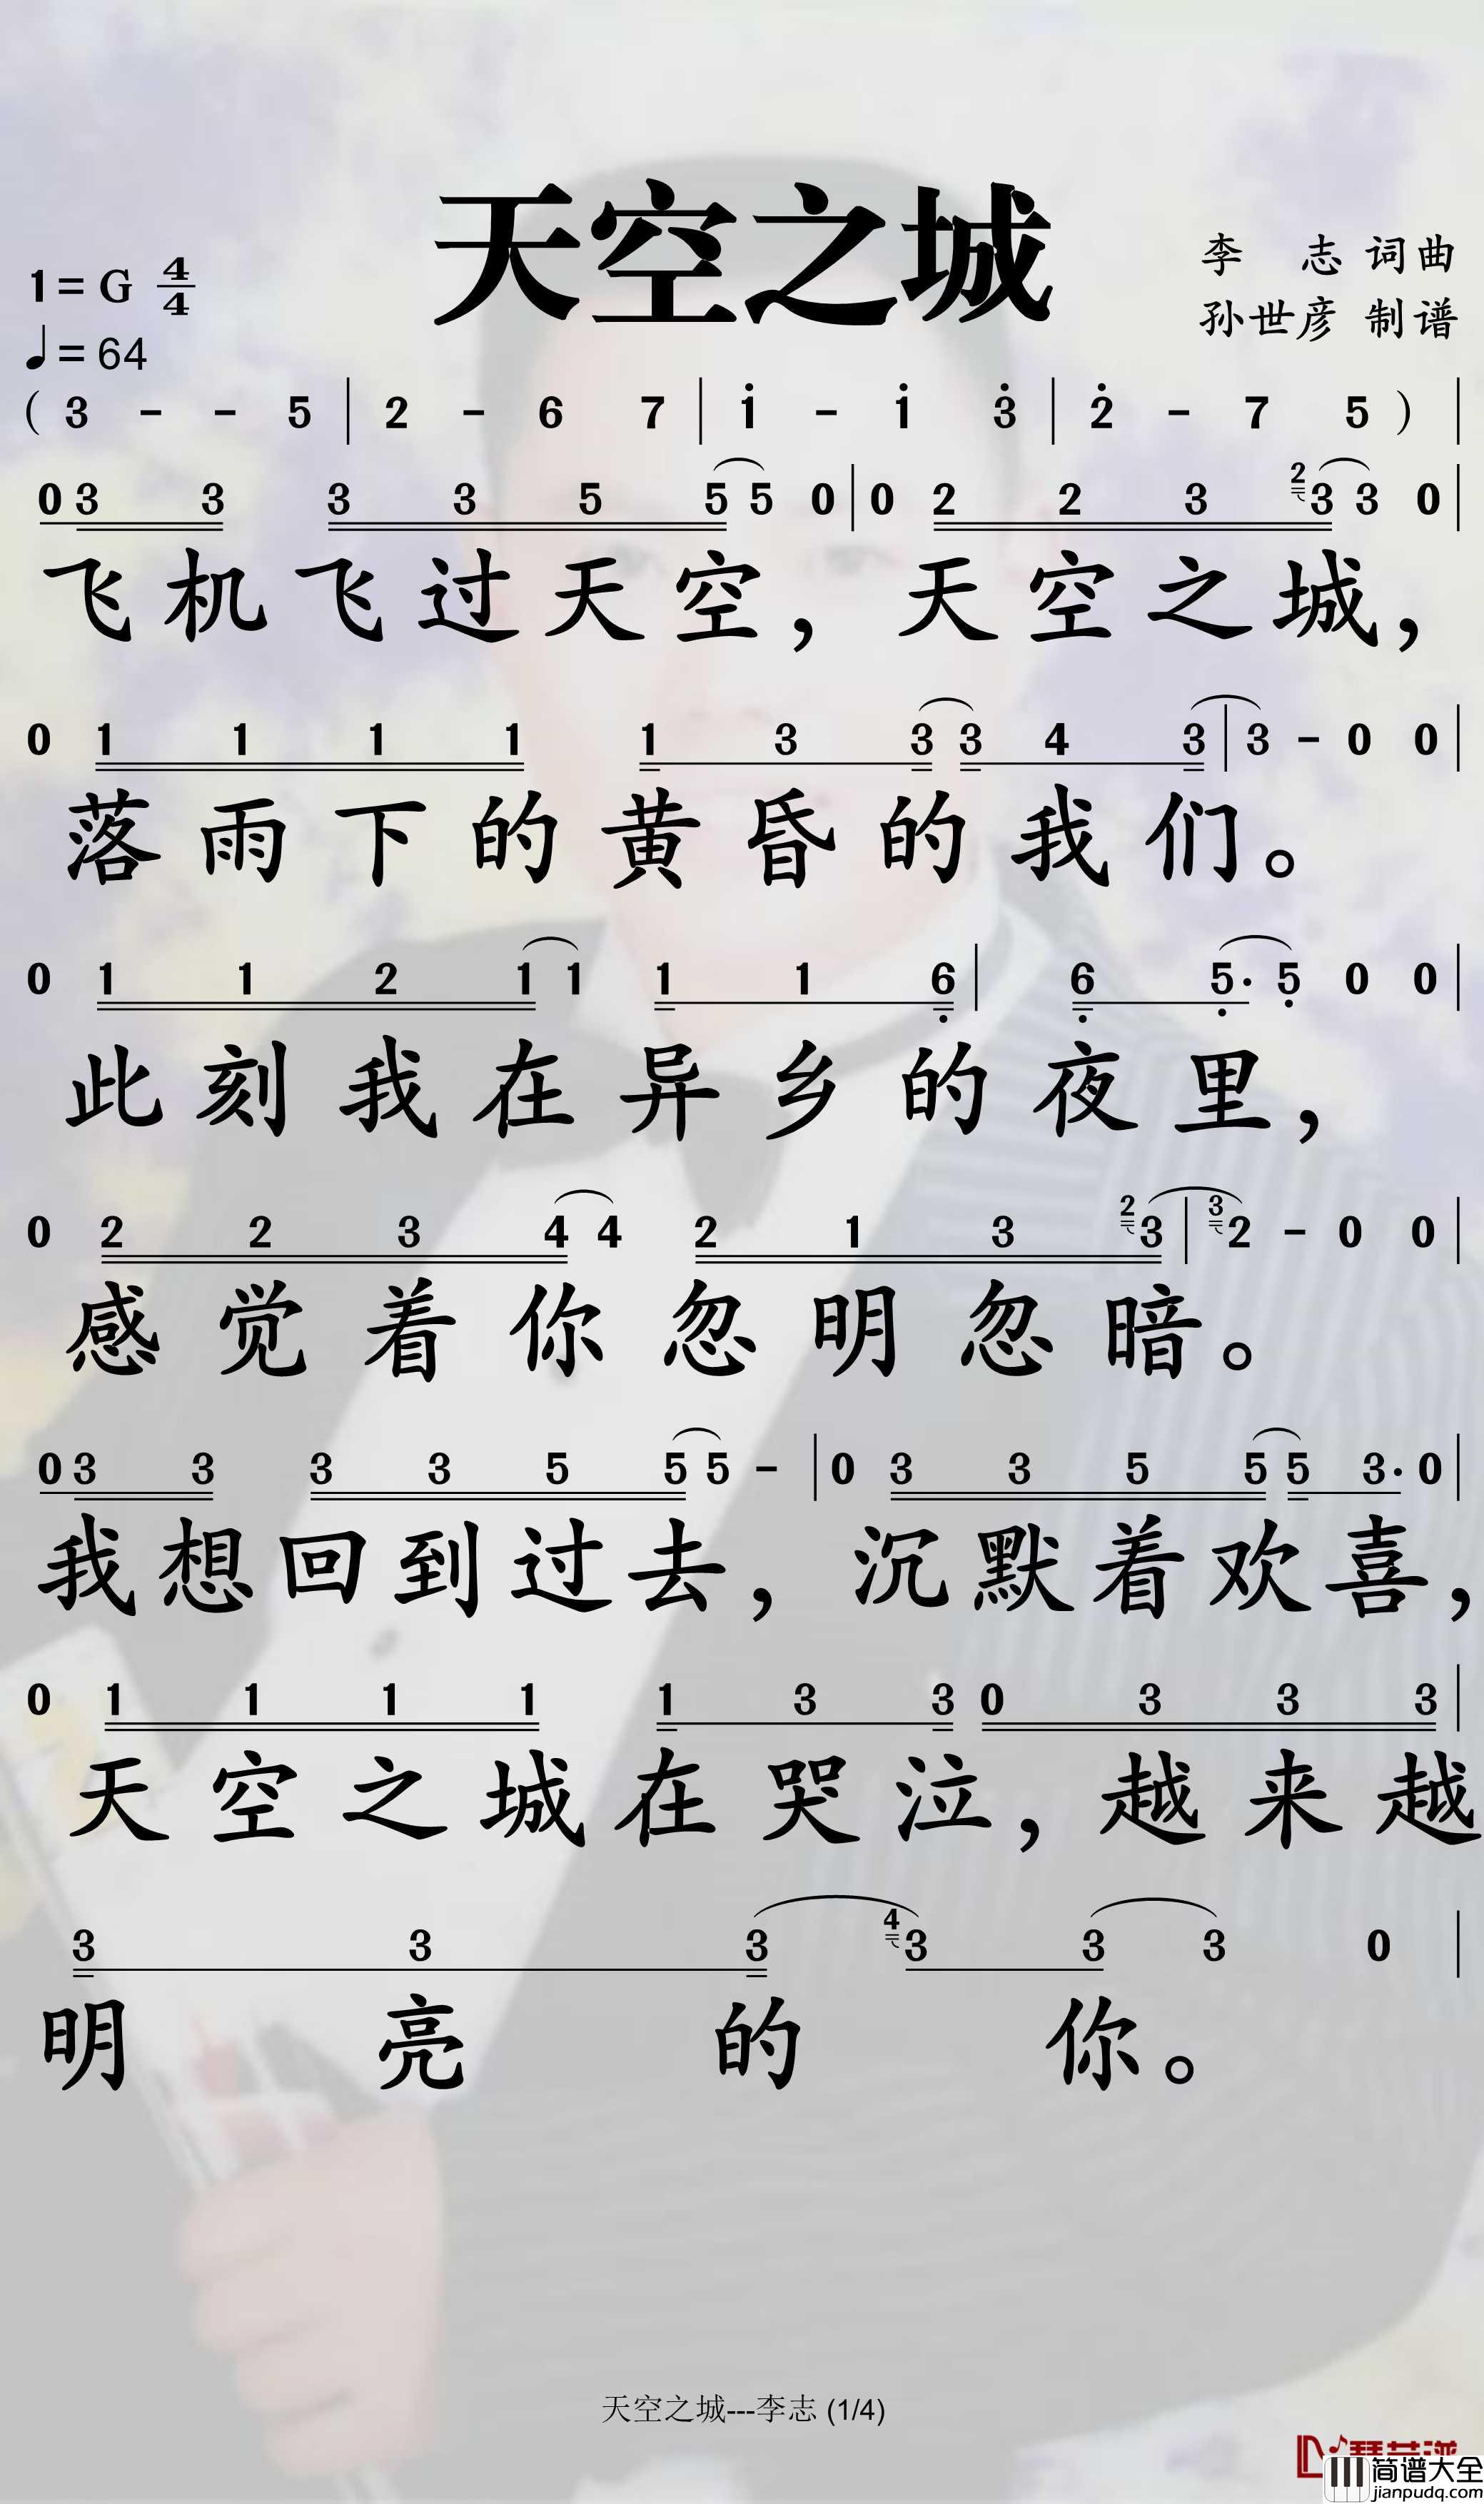 天空之城
1=G 4/4
李 志 词曲
♩=64
孙世彦 制谱
( 3 - - 5 | 2 - 6 7 | 1 - 1 3 | 2 - 7 5 ) |
0 3 3 3 3 5 5 5 0 | 0 2 2 3 2 3 3 0 |
飞机飞过天空，天空之城，
0 1 1 1 1 1 3 3 3 4 3 | 3 - 0 0 |
落雨下的黄昏的我们。
0 1 1 2 1 1 1 1 6 | 6 5· 5 0 0 |
此刻我在异乡的夜里，
0 2 2 3 4 4 2 1 3 2 3 | 3 2 - 0 0 |
感觉着你忽明忽暗。
0 3 3 3 3 5 5 5 - | 0 3 3 5 5 5 3· 0 |
我想回到过去，沉默着欢喜，
0 1 1 1 1 1 3 3 0 3 3 3 |
天空之城在哭泣，越来越
3 3 3 4 3 3 3 0 |
明亮的你。
天空之城---李志 (1/4)
简谱大全
jianpudq.com